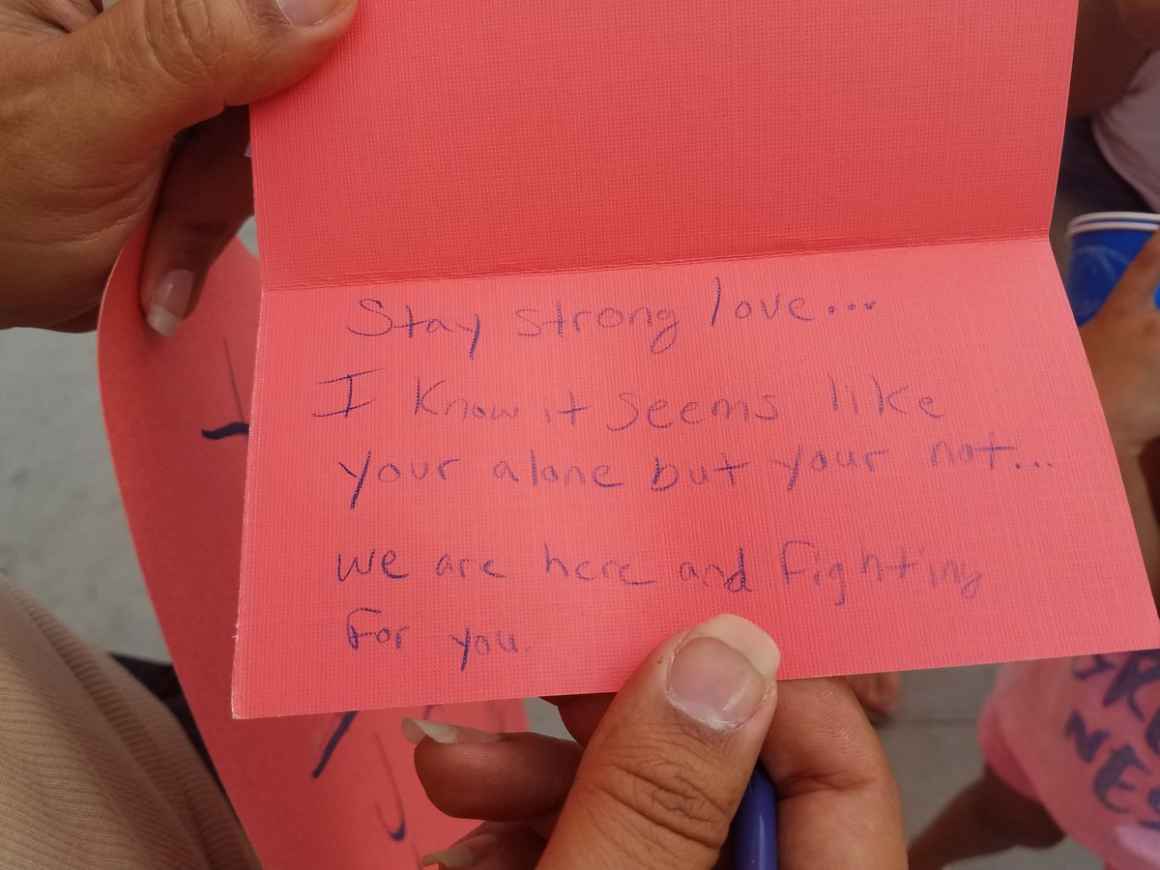 Stay strong love...
I know it seems like
your alone but your not...
we are here and fighting
for you.
NES